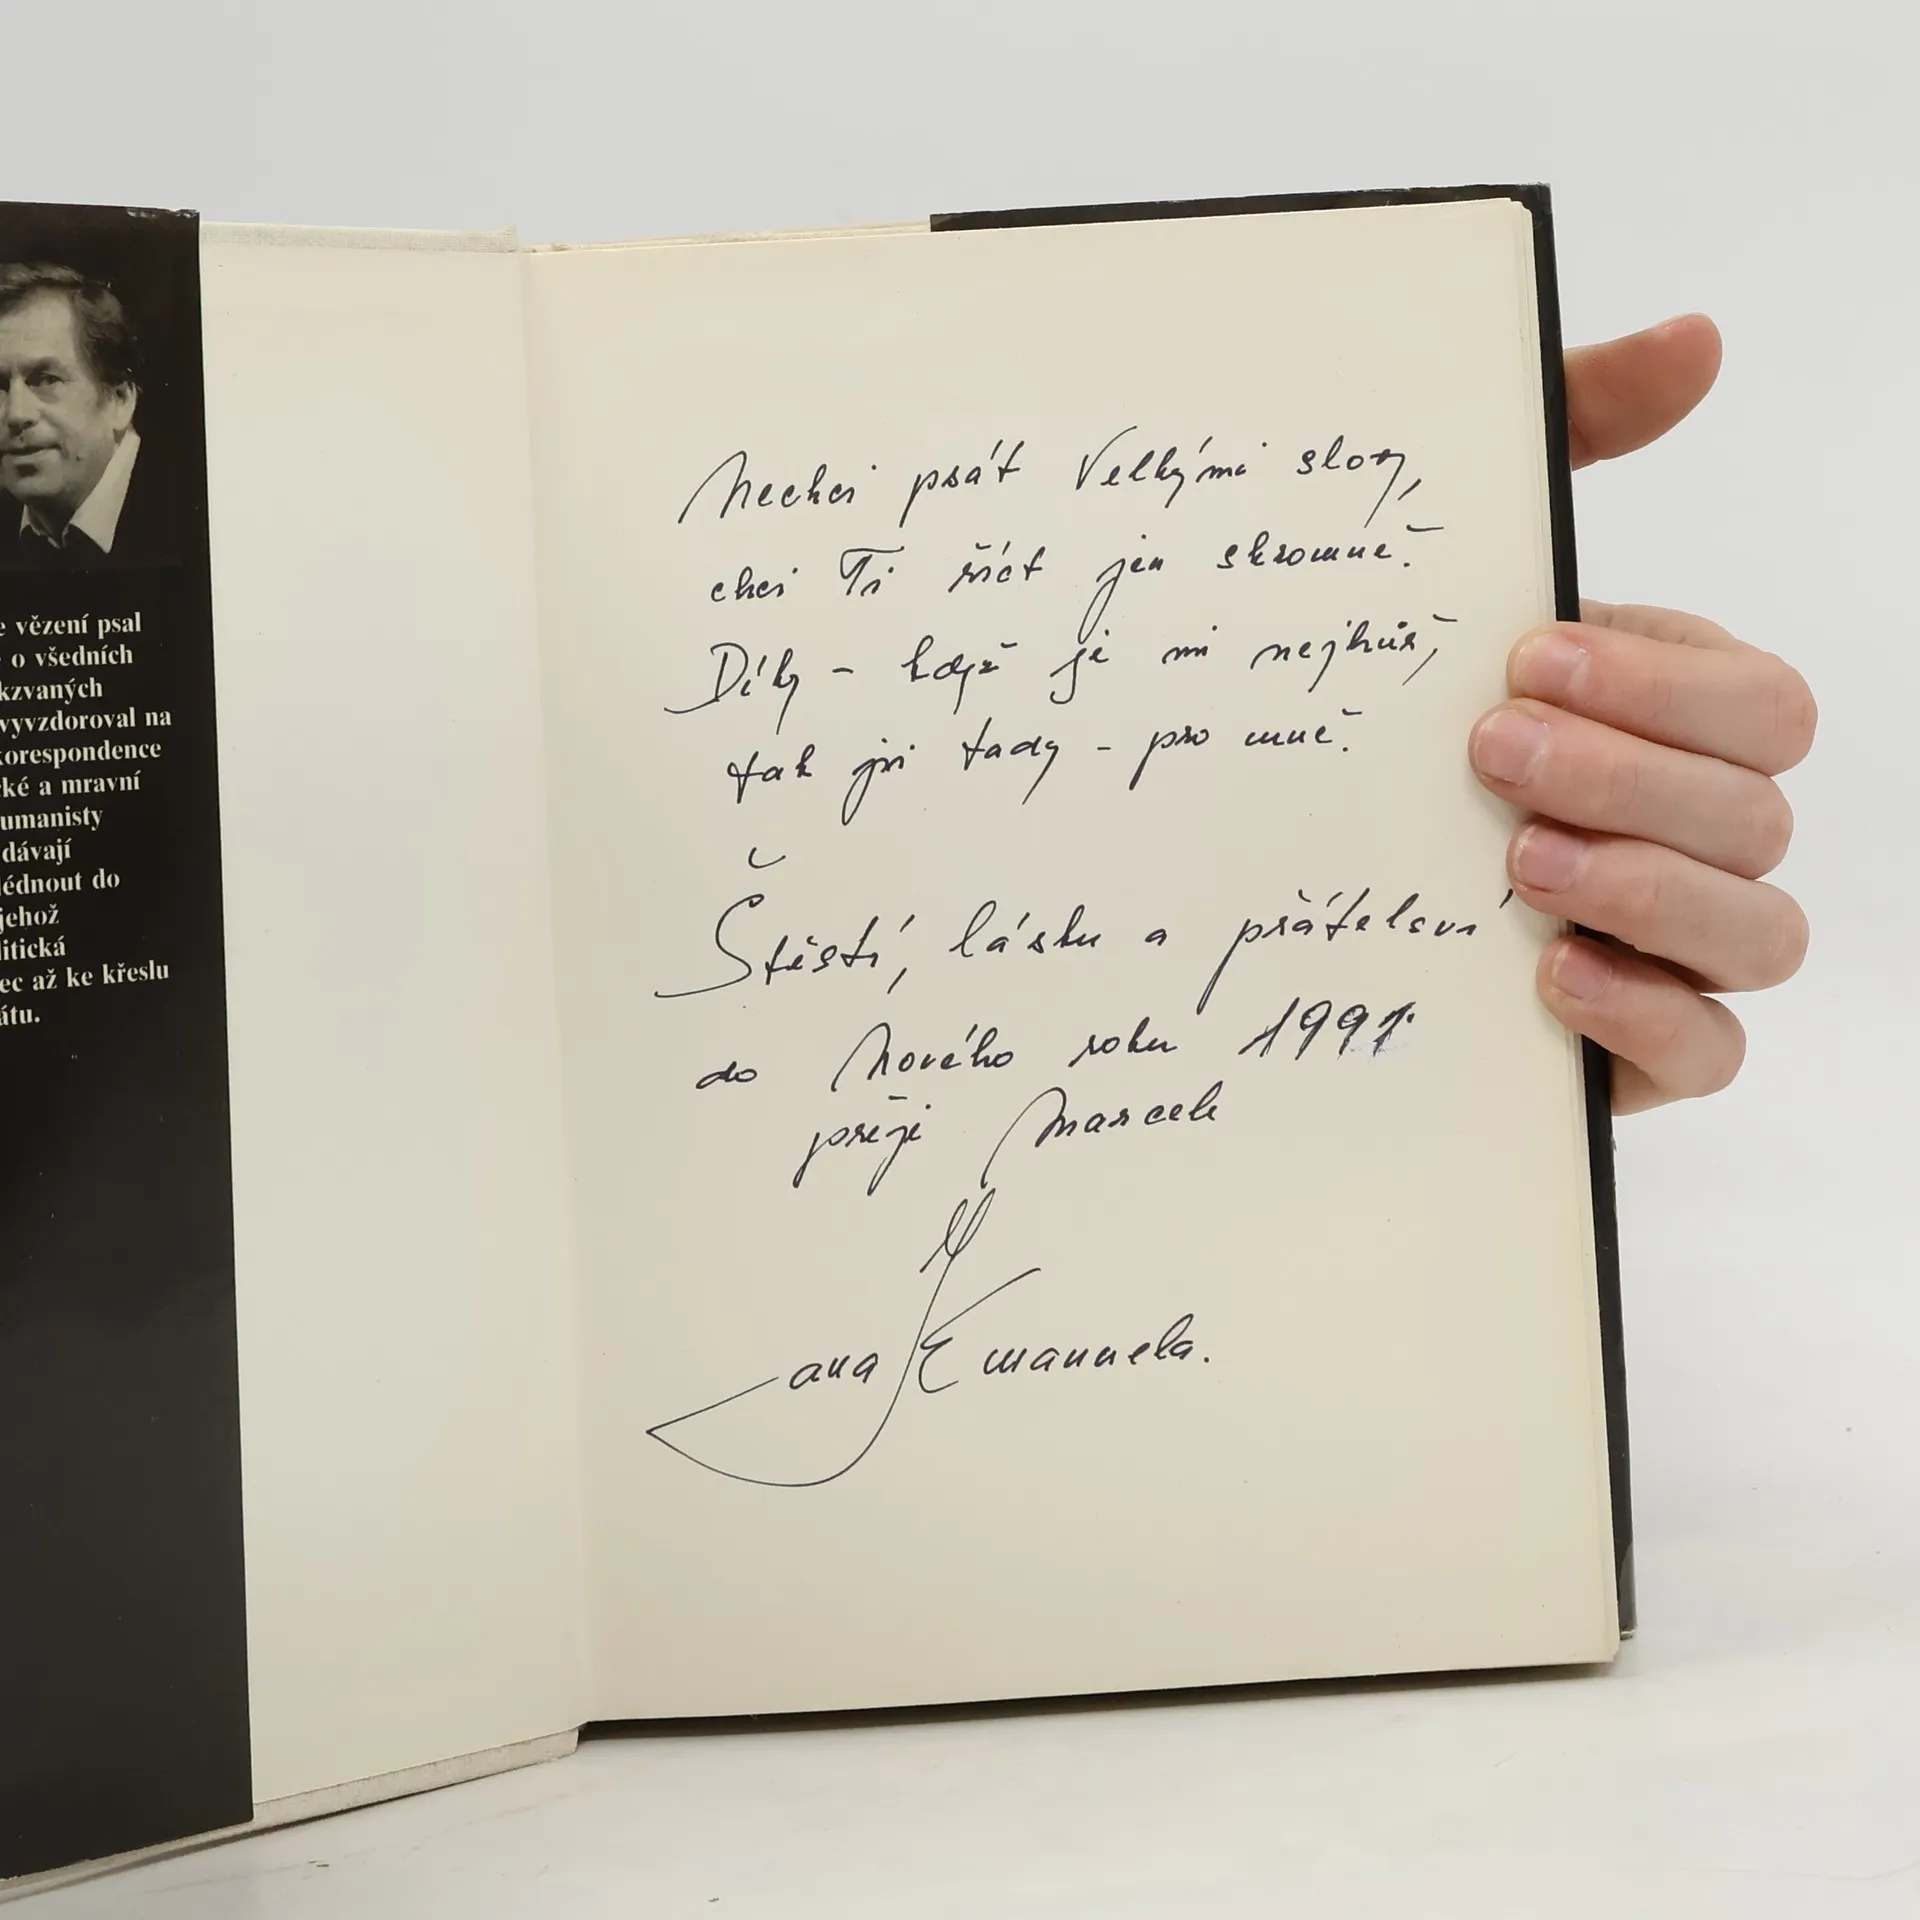 e vězení psal
o všedních
kzvaných
vyvzdoroval na
korespondence
cké a mravní
umanisty
dávají
lédnout do
jehož
litická
ec až ke křeslu
átu.
Nechci psát Velkými slovy,
chci Ti říct jen skromně.
Díky - když je mi nejhůř,
tak jsi tady - pro mně.
Štěstí, lásku a přátelství
do Nového roku 1991.
přeji Marcele
Jana Emanuela.